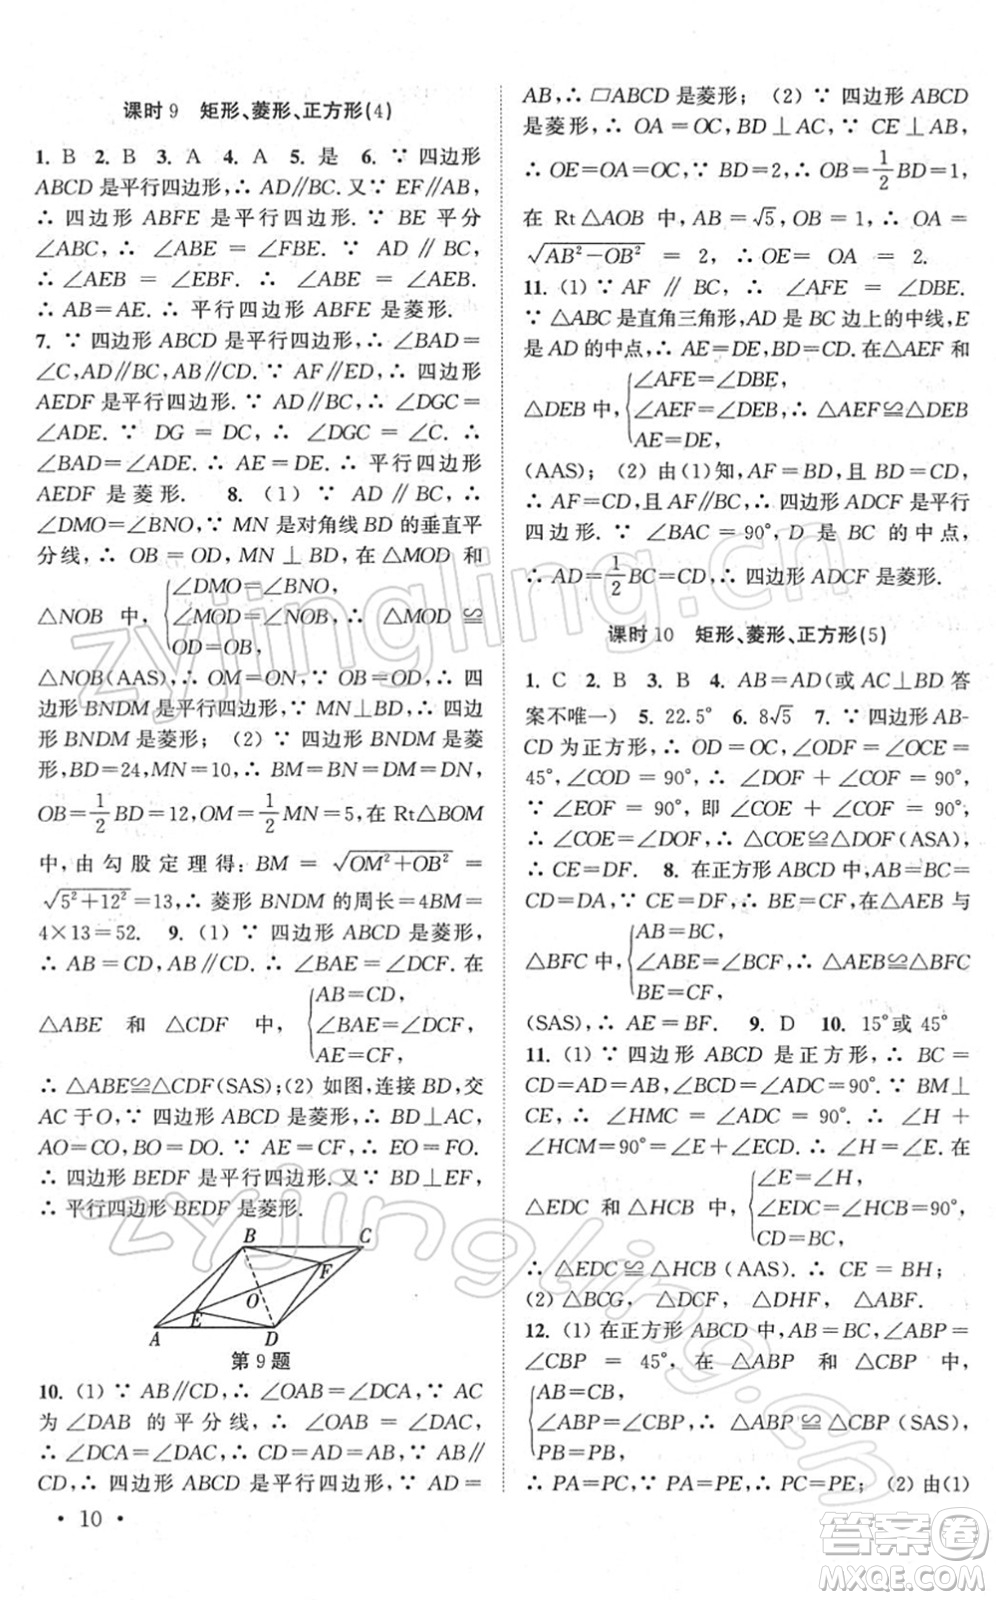 课时9 矩形、菱形、正方形(4)
1. B 2. B 3. A 4. A 5. 是 6. ∵ 四边形
ABCD 是平行四边形,∴ AD∥BC. 又∵ EF∥AB,
∴ 四边形 ABFE 是平行四边形. ∵ BE 平分
∠ABC, ∴ ∠ABE = ∠FBE. ∵ AD ∥ BC,
∴ ∠AEB = ∠EBF. ∴ ∠ABE = ∠AEB.
∴ AB=AE. ∴ 平行四边形 ABFE 是菱形.
7. ∵ 四边形 ABCD 是平行四边形,∴ ∠BAD=
∠C,AD∥BC. ∵ AF∥ED,∴ 四边形
AEDF 是平行四边形. ∵ AD∥BC,∴ ∠DGC=
∠ADE. ∵ DG = DC, ∴ ∠DGC = ∠C. ∴
∠BAD=∠ADE. ∴ AE=DE. ∴ 平行四边形
AEDF 是菱形. 8. (1) ∵ AD ∥ BC, ∴
∠DMO=∠BNO,∵ MN 是对角线 BD 的垂直平
分线,∴ OB = OD,MN⊥BD,在△MOD 和
△NOB 中, {∠DMO=∠BNO,
∠MOD=∠NOB, ∴ △MOD ≌
OD=OB,
△NOB(AAS),∴ OM=ON,∵ OB=OD,∴ 四
边形 BNDM 是平行四边形,∵ MN⊥BD,∴ 四边
形 BNDM 是菱形; (2) ∵ 四边形 BNDM 是菱
形,BD=24,MN=10,∴ BM=BN=DM=DN,
OB=1/2BD=12,OM=1/2MN=5,在 Rt△BOM
中,由勾股定理得:BM = √(OM²+OB²) =
√(5²+12²)=13,∴ 菱形 BNDM 的周长=4BM=
4×13=52. 9. (1) ∵ 四边形 ABCD 是菱形,
∴ AB=CD,AB∥CD,∴ ∠BAE=∠DCF. 在
△ABE 和 △CDF 中, {AB=CD,
∠BAE=∠DCF,
AE=CF,
∴ △ABE≌△CDF(SAS);(2) 如图,连接 BD,交
AC 于O,∵ 四边形 ABCD 是菱形,∴ BD⊥AC,
AO=CO,BO=DO. ∵ AE=CF,∴ EO=FO.
∴ 四边形 BEDF 是平行四边形. ∵ BD⊥EF,
∴ 平行四边形 BEDF 是菱形.
B C
F
O
E
A D
第 9 题
10. (1) ∵ AB∥CD,∴ ∠OAB=∠DCA,∵ AC
为∠DAB 的平分线,∴ ∠OAB = ∠DAC,
∴ ∠DCA=∠DAC,∴ CD=AD=AB,∵ AB∥
CD,∴ 四边形 ABCD 是平行四边形,∵ AD =
• 10 •
AB,∴ □ABCD 是菱形; (2) ∵ 四边形 ABCD
是菱形,∴ OA=OC,BD⊥AC,∵ CE⊥AB,
∴ OE=OA=OC,∵ BD=2,∴ OB=1/2BD=1,
在 Rt△AOB 中,AB=√5,OB=1,∴ OA=
√(AB²−OB²) = 2,∴ OE = OA = 2.
11. (1) ∵ AF ∥ BC, ∴ ∠AFE = ∠DBE.
∵ △ABC 是直角三角形,AD 是 BC 边上的中线,E
是 AD 的中点,∴ AE=DE,BD=CD. 在△AEF 和
△DEB 中, {∠AFE=∠DBE,
∠AEF=∠DEB,∴ △AEF≌△DEB
AE=DE,
(AAS); (2) 由(1)知,AF=BD,且 BD=CD,
∴ AF=CD,且 AF∥BC,∴ 四边形 ADCF 是平行
四边形. ∵ ∠BAC=90°,D 是 BC 的中点,
∴ AD=1/2BC=CD,∴ 四边形 ADCF 是菱形.
课时10 矩形、菱形、正方形(5)
1. C 2. B 3. B 4. AB=AD(或 AC⊥BD 答
案不唯一) 5. 22.5° 6. 8√5 7. ∵ 四边形 AB-
CD 为正方形,∴ OD=OC,∠ODF=∠OCE=
45°,∠COD = 90°,∴ ∠DOF + ∠COF = 90°.
∵ ∠EOF = 90°, 即 ∠COE + ∠COF = 90°,
∴ ∠COE=∠DOF,∴ △COE≌△DOF(ASA).
∴ CE=DF. 8. 在正方形 ABCD 中,AB=BC=
CD=DA,∵ CE=DF,∴ BE=CF,在△AEB 与
△BFC 中, {AB=BC,
∠ABE=∠BCF,∴ △AEB≌△BFC
BE=CF,
(SAS),∴ AE=BF. 9. D 10. 15°或 45°
11. (1) ∵ 四边形 ABCD 是正方形,∴ BC=
CD=AD=AB,∠BCD=∠ADC=90°. ∵ BM⊥
CE,∴ ∠HMC = ∠ADC = 90°. ∴ ∠H +
∠HCM=90°=∠E+∠ECD. ∴ ∠H=∠E. 在
△EDC 和△HCB 中, {∠E=∠H,
∠EDC=∠HCB=90°,
CD=BC,
∴ △EDC ≌ △HCB (AAS). ∴ CE = BH;
(2) △BCG, △DCF, △DHF, △ABF.
12. (1) 在正方形 ABCD 中,AB=BC,∠ABP=
∠CBP = 45°, 在 △ABP 和 △CBP 中,
{AB=CB,
∠ABP=∠CBP,∴ △ABP≌△CBP (SAS),
PB=PB,
∴ PA=PC,∵ PA=PE,∴ PC=PE; (2) 由(1)
zyjingling.cn
zyjingling.cn
答案圈
MXQE.COM